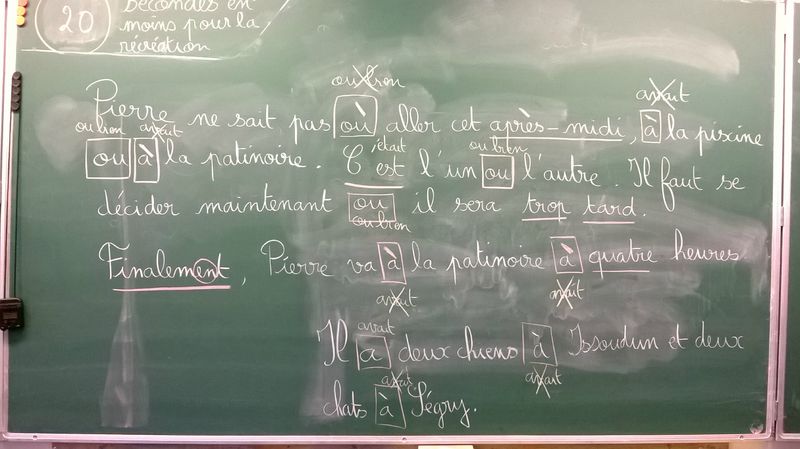 20
secondes en
moins pour la
récréation
ou bien avait
Pierre ne sait pas où aller cet après-midi, à la piscine
ou bien avait était ou bien
ou à la patinoire. C'est l'un ou l'autre. Il faut se
décider maintenant ou il sera trop tard.
ou bien
Finalement, Pierre va à la patinoire à quatre heures
avait avait
avait
Il a deux chiens à Issoudun et deux
avait avait
chats à Ségry.